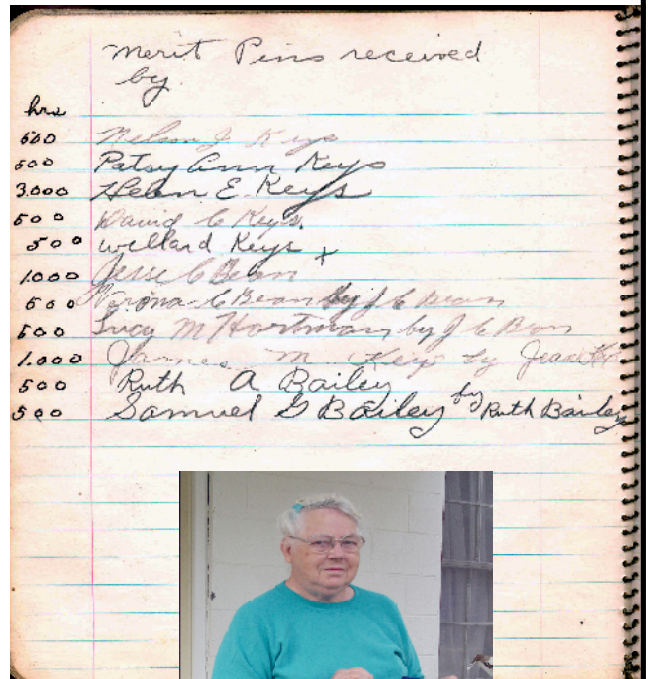 Merit Pins received
by
hrs
500 Nelson J Keys
500 Patsy Ann Keys
3.000 Helen E. Keys
500 David C Keys.
500 Willard Keys x
1.000 Jesse C Bean
500 Verona C Bean by J C Bean
500 Lucy M Hortman by J C Bean
1.000 James M Keys by Jean
500 Ruth A Bailey
500 Samuel G Bailey by Ruth Bailey